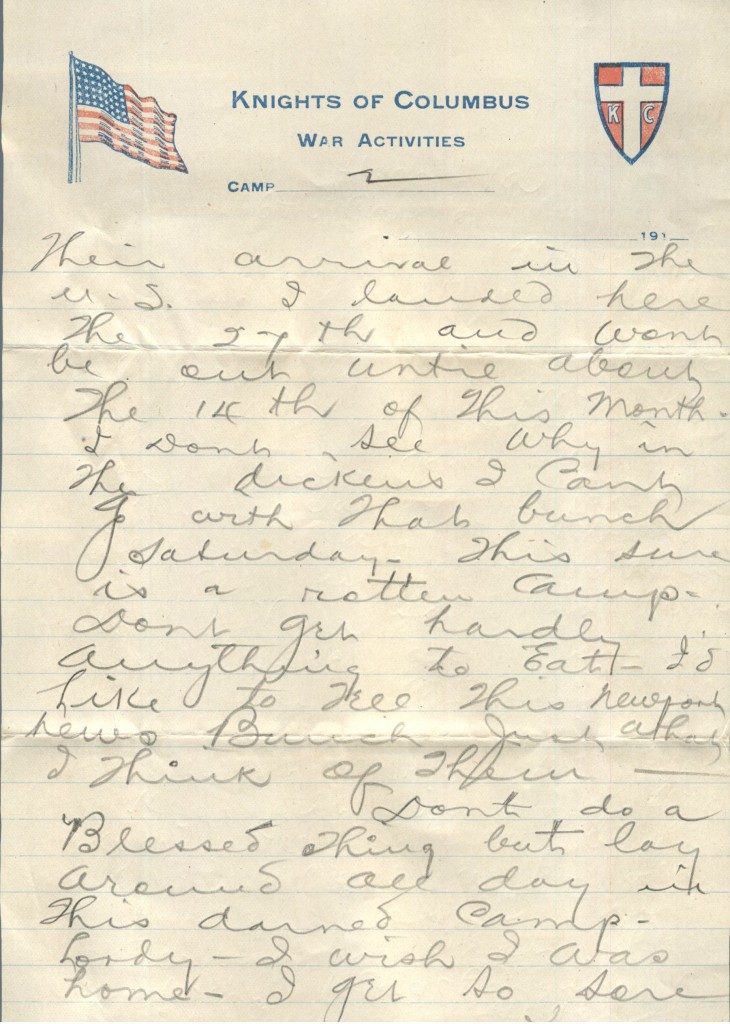 KNIGHTS OF COLUMBUS
WAR ACTIVITIES
K C
CAMP
191
Their arrival in the
U.S. I landed here
The 27th and wont
be out until about
The 14th of This Month-
I Dont see why in
The dickens I Cant
go with That bunch
Saturday- This sure
is a rotten Camp-
Dont get hardly
Anything to Eat- I'd
Like to Tell This Newport
News Bunch Just What
I Think of Them —
Dont do a
Blessed Thing but lay
Around all day in
This darned Camp-
Lordy- I wish I was
home- I get so sore